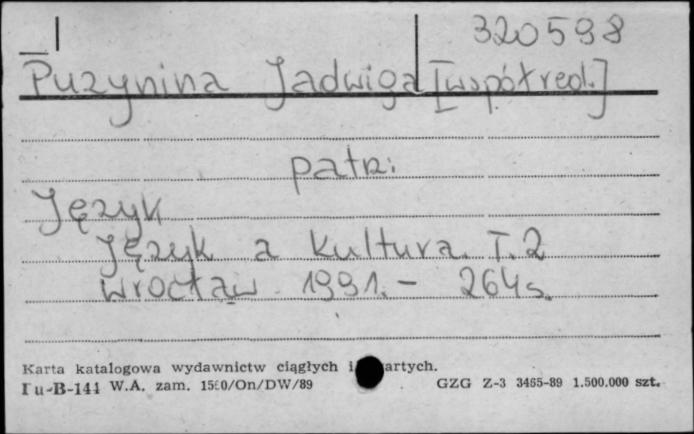 320598
Puzynina Jadwiga [współred.]
patrz:
Język
Język a Kultura. T. 2
Wrocław 1991. - 264 s.
Karta katalogowa wydawnictw ciągłych i artych.
Pu-B-144 W.A. zam. 1580/On/DW/89 GZG Z-3 3465-89 1.500.000 szt.